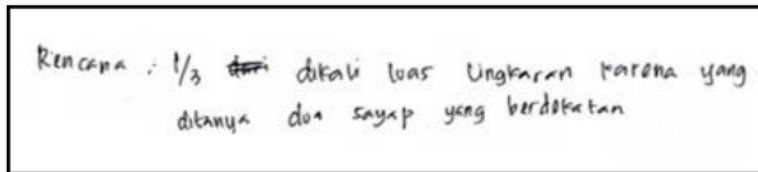 Rencana : 1/3 dikali luas lingkaran karena yang
ditanya dua sayap yang berdekatan